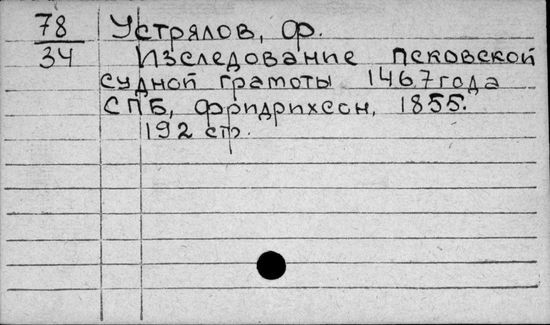 78
34
Устрялов, Ф.
Изследование Псковской
судной грамоты 1467 года
СПБ, Фридрихсон, 1855.
192 стр.